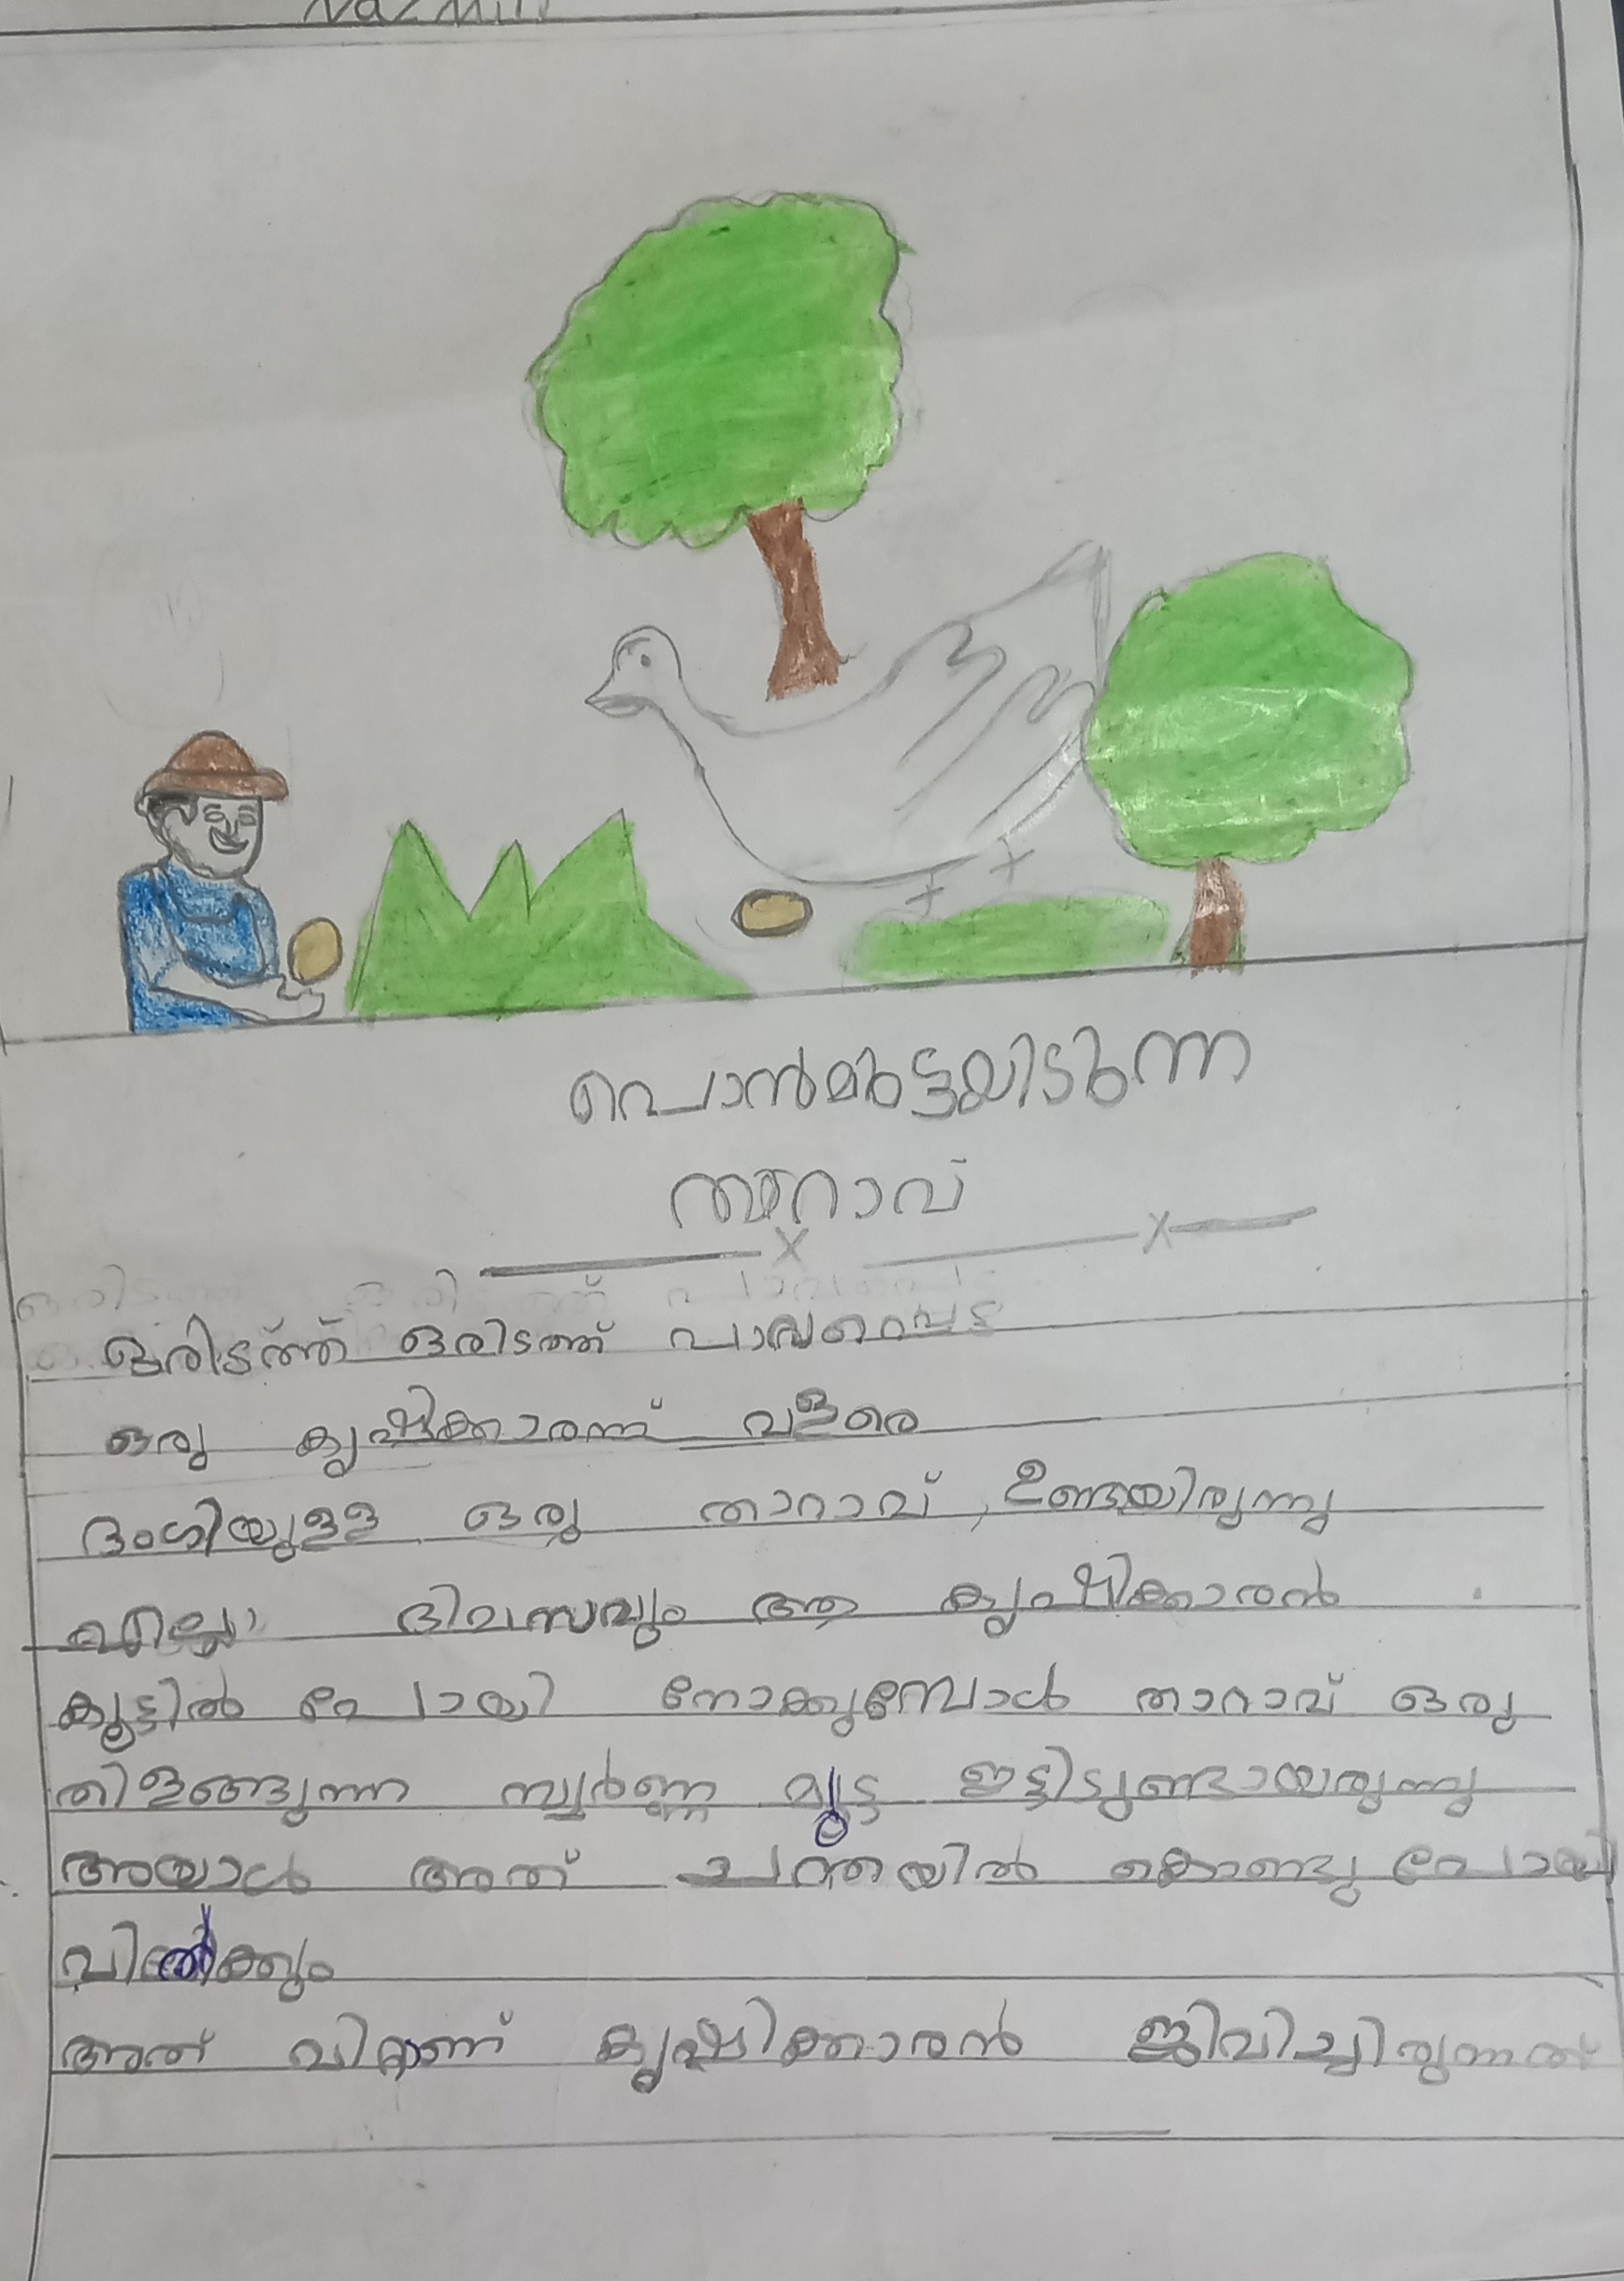 പൊൻമുട്ടയിടുന്ന
താറാവ്
ഒരിടത്ത് ഒരിടത്ത് പാവപ്പെട്ട
ഒരു കൃഷിക്കാരന്ന് വളരെ
ദംഗിയുളള ഒരു താറാവ് , ഉണ്ടായിരുന്നു
എല്ലാ ദിവസവും ആ കൃഷിക്കാരൻ
കൂട്ടിൽ പോയി നോക്കുമ്പോൾ താറാവ് ഒരു
തിളങ്ങുന്ന സ്വർണ്ണ മുട്ട ഇട്ടിടുണ്ടായരുന്നു
അയാൾ അത് ചന്തയിൽ കൊണ്ടു പോയി
വിൽക്കും
അത് വിറ്റാണ് കൃഷിക്കാരൻ ജീവിച്ചിരുന്നത്